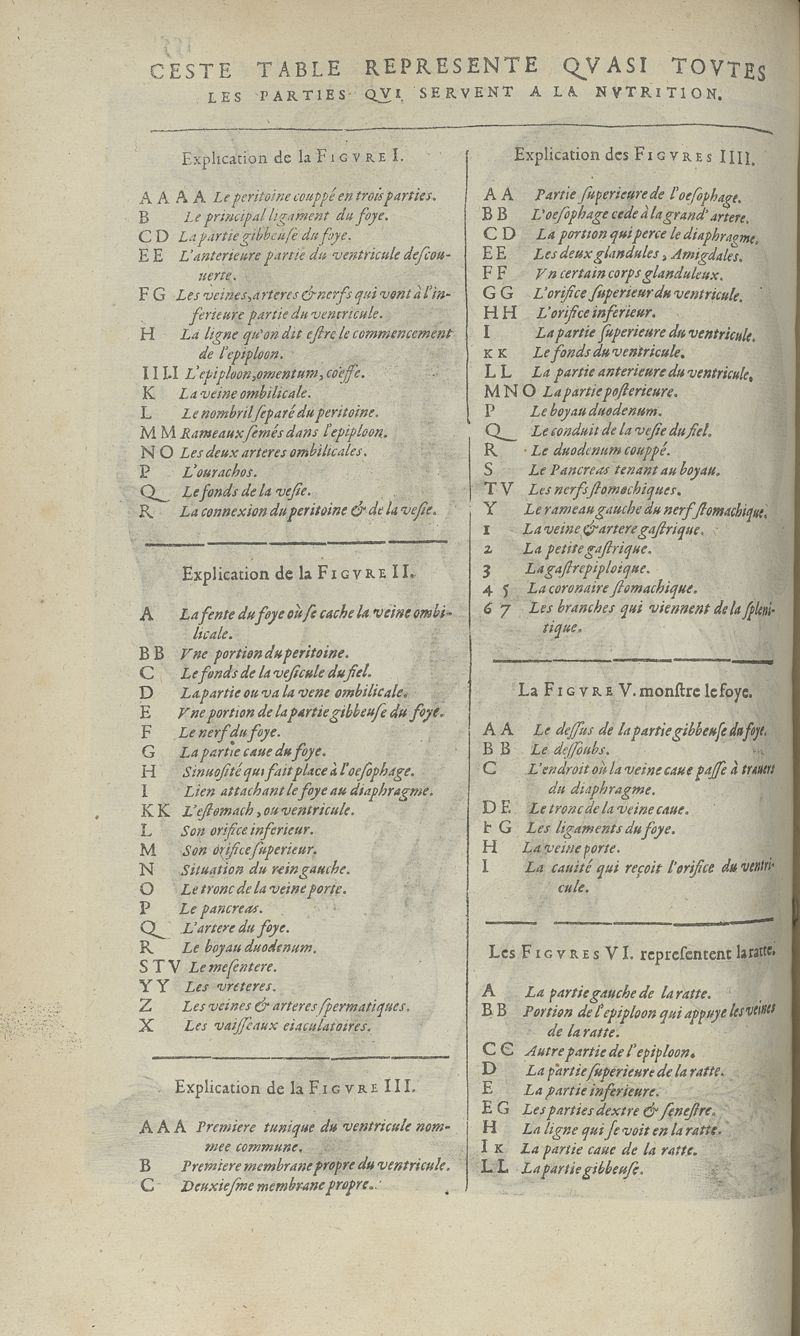 CESTE TABLE REPRESENTE QVASI TOVTES
LES PARTIES QVI SERVENT A LA NVTRITION.
Explication de la FIGVRE I.
A A A A Le peritoine couppé en trois parties.
B Le principal ligament du foye.
C D La partie gibbeuſe du foye.
E E L'anterieure partie du ventricule deſcou-
uerte.
F G Les veines, arteres & nerfs qui vont à l'in-
ferieure partie du ventricule.
H La ligne qu'on dit eſtre le commencement
de l'epiploon.
I I I.I L'epiploon, omentum, coëffe.
K La veine ombilicale.
L Le nombril ſeparé du peritoine.
M M Rameaux ſemés dans l'epiploon.
N O Les deux arteres ombilicales.
P L'ourachos.
Q Le fonds de la veſie.
R La connexion du peritoine & de la veſie.
Explication de la FIGVRE II.
A La fente du foye où ſe cache la veine ombi-
licale.
B B Vne portion du peritoine.
C Le fonds de la veſicule du fiel.
D La partie ou va la vene ombilicale.
E Vne portion de la partie gibbeuſe du foye.
F Le nerf du foye.
G La partie caue du foye.
H Sinuoſité qui fait place à l'oeſophage.
I Lien attachant le foye au diaphragme.
K K L'eſtomach, ou ventricule.
L Son orifice inferieur.
M Son orifice ſuperieur.
N Situation du rein gauche.
O Le tronc de la veine porte.
P Le pancreas.
Q L'artere du foye.
R Le boyau duodenum.
S T V Le meſentere.
Y Y Les vreteres.
Z Les veines & arteres ſpermatiques.
X Les vaiſſeaux eiaculatoires.
Explication de la FIGVRE III.
A A A Premiere tunique du ventricule nom-
mee commune.
B Premiere membrane propre du ventricule.
C Deuxieſme membrane propre.
Explication des FIGVRES IIII.
A A Partie ſuperieure de l'oeſophage.
B B L'oeſophage cede à la grand' artere.
C D La portion qui perce le diaphragme.
E E Les deux glandules, Amigdales.
F F Vn certain corps glanduleux.
G G L'orifice ſuperieur du ventricule.
H H L'orifice inferieur.
I La partie ſuperieure du ventricule.
K K Le fonds du ventricule.
L L La partie anterieure du ventricule.
M N O La partie poſterieure.
P Le boyau duodenum.
Q Le conduit de la veſie du fiel.
R Le duodenum couppé.
S Le Pancreas tenant au boyau.
T V Les nerfs ſtomachiques.
Y Le rameau gauche du nerf ſtomachique.
1 La veine & artere gaſtrique.
2 La petite gaſtrique.
3 La gaſtrepiploique.
4 5 La coronaire ſtomachique.
6 7 Les branches qui viennent de la ſpleni-
tique.
La FIGVRE V. monſtre le foye.
A A Le deſſus de la partie gibbeuſe du foye.
B B Le deſſoubs.
C L'endroit où la veine caue paſſe à trauers
du diaphragme.
D E Le tronc de la veine caue.
F G Les ligaments du foye.
H La veine porte.
I La cauité qui reçoit l'orifice du ventri-
cule.
Les FIGVRES VI. repreſentent la ratte.
A La partie gauche de la ratte.
B B Portion de l'epiploon qui appuye les veines
de la ratte.
C C Autre partie de l'epiploon.
D La partie ſuperieure de la ratte.
E La partie inferieure.
E G Les parties dextre & ſeneſtre.
H La ligne qui ſe voit en la ratte.
I K La partie caue de la ratte.
L L La partie gibbeuſe.